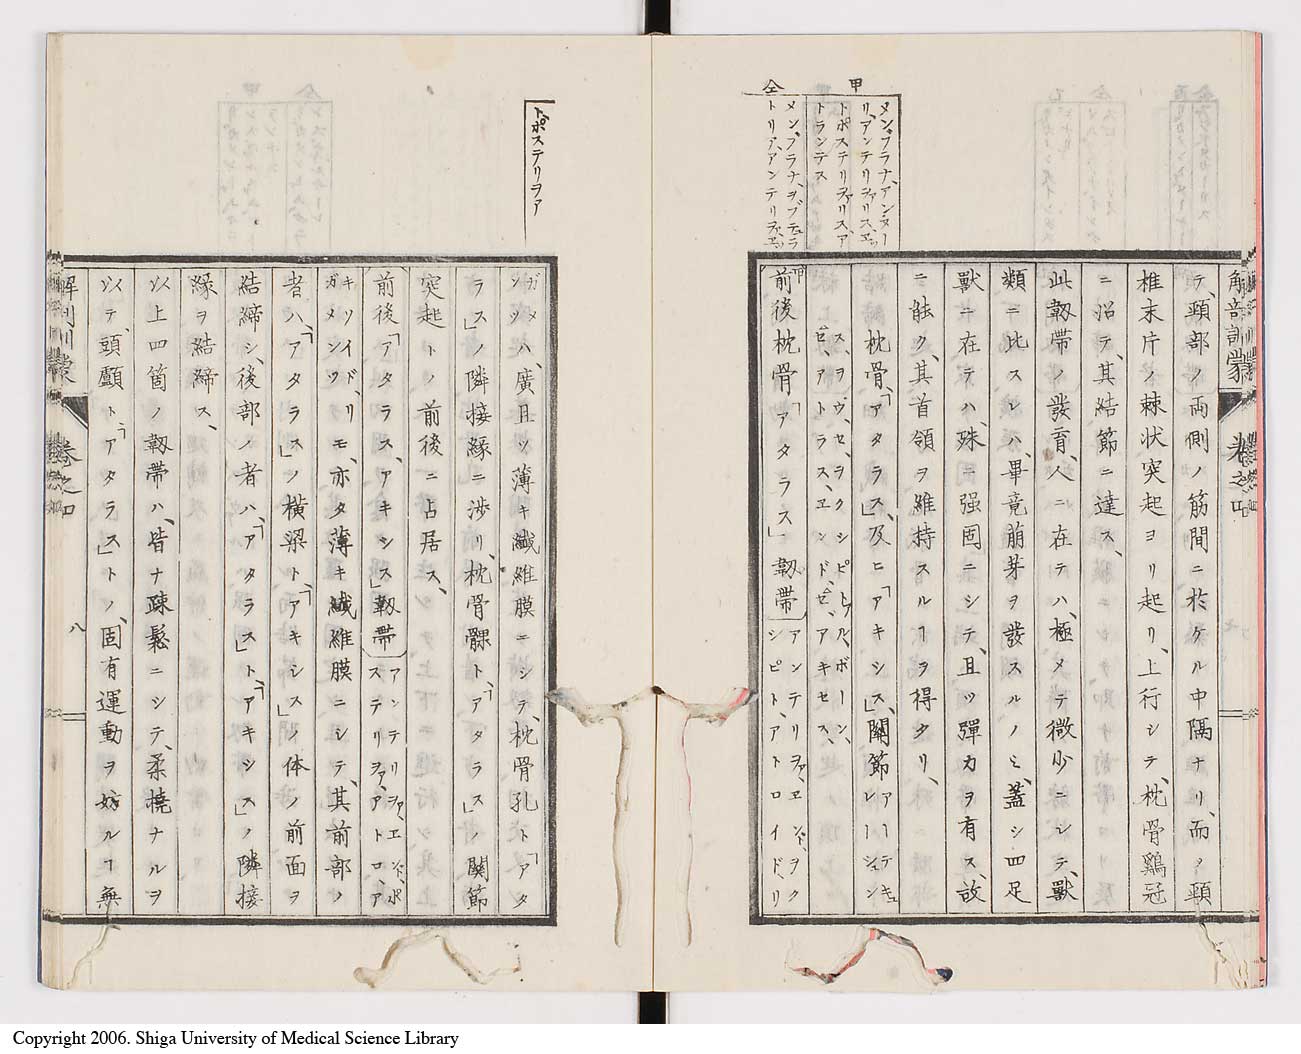 甲
メンブラナ、アンヌー
リ、アンテリヲリス、エッ
トポステリヲリス、ア
トランテス
仝
メンブラナ、ヲブチュラ
トリア、アンテリヲル、エッ
解剖訓蒙
卷之四
テ、頸部ノ両側ノ筋間ニ於ケル中隔ナリ、而メ頸
椎末片ノ棘状突起ヨリ起リ、上行シテ、枕骨鷄冠
ニ沿テ、其結節ニ達ス、
此靱帯ノ發育、人ニ在テハ、極メテ微少ニシテ、獸
類ニ比スレハ、畢竟崩芽ヲ發スルノミ、蓋シ四足
獸ニ在テハ、殊ニ强固ニシテ、且ツ彈力ヲ有ス、故
ニ能ク、其首領ヲ維持スルヿヲ得タリ、
枕骨、「アタラス」及ヒ「アキシス」關節アーテキュレーシュン
ス、ヲヴ、セ、ヲクシピトル、ボーン、
ゼ、アトラス、エンド、ゼ、アキセス、
甲
前後枕骨「アタラス」靱帯アンテリヲァ、エンド、ヲク
シピト、アトロイド、リ
トポステリヲア
ガメンツハ、廣且ツ薄キ纎維膜ニシテ、枕骨孔ト「アタ
ラス」ノ隣接縁ニ渉リ、枕骨髁ト、「アタラス」ノ關節
突起トノ前後ニ占居ス、
前後「アタラス、アキシス」靱帯アンテリヲァ、エンド、ポ
ステリヲァ、アトロ、ア
キソイド、リ
ガメンツモ、亦タ薄キ纎維膜ニシテ、其前部ノ
者ハ、「アタラス」ノ横梁ト、「アキシス」ノ体ノ前面ヲ
結締シ、後部ノ者ハ、「アタラス」ト、「アキシス」ノ隣接
縁ヲ結締ス、
以上四箇ノ靱帯ハ、皆ナ疎鬆ニシテ、柔撓ナルヲ
以テ、頭顱ト「アタラス」トノ、固有運動ヲ妨ルヿ無
解剖訓蒙
卷之四
八
Copyright 2006. Shiga University of Medical Science Library